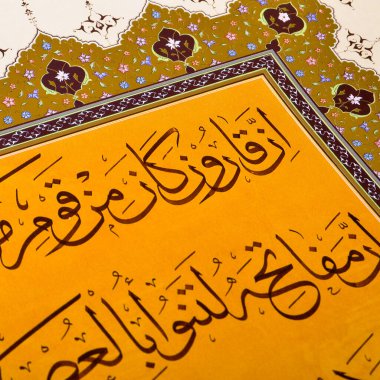 اِنَّ قارُونَ كانَ مِنْ قَوْمِ
اِنَّ مَفاتِحَهُ لَتَنُوأُ بِالْعُصـ